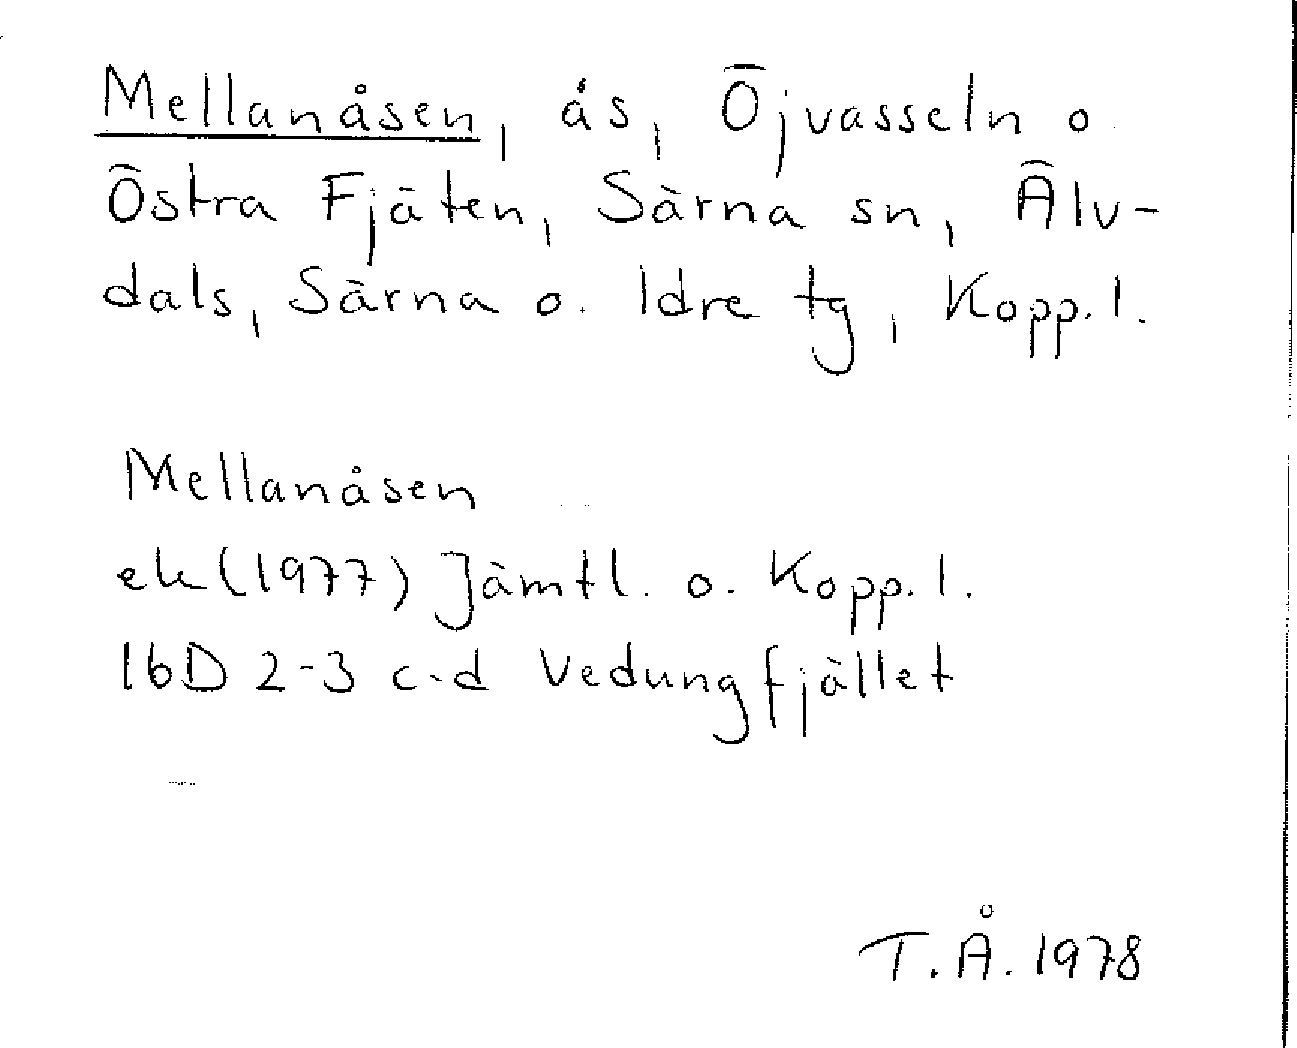 Mellanåsen, ås, Öjvasseln o
Östra Fjäten, Särna sn, Älv-
dals, Särna o. Idre tg, Kopp. l.
Mellanåsen
ek (1977) Jämtl. o. Kopp. l.
16D 2-3 c-d Vedungfjället
T. Å. 1978